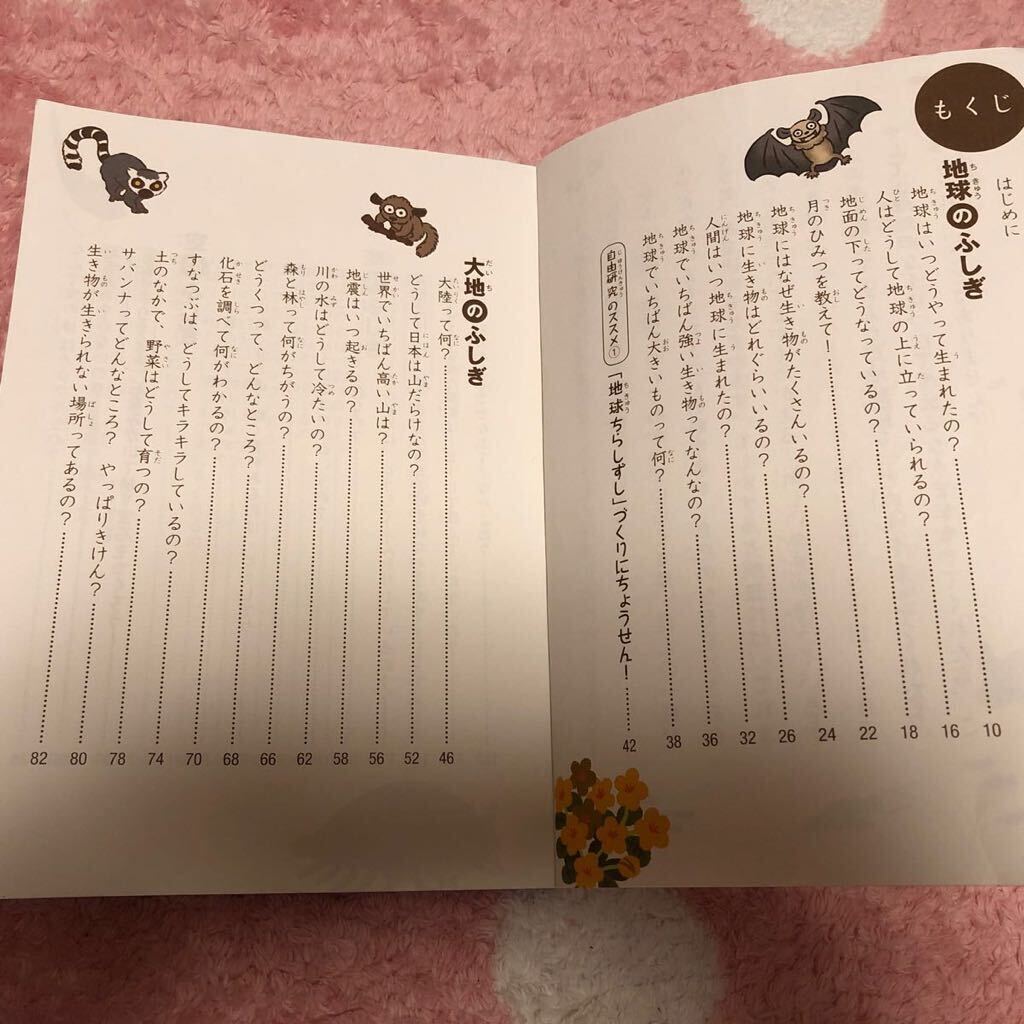 もくじ
はじめに
地球のふしぎ
地球はいつどうやって生まれたの?……10
人はどうして地球の上に立っていられるの?……16
地面の下ってどうなっているの?……18
月のひみつを教えて!……22
地球にはなぜ生き物がたくさんいるの?……24
地球に生き物はどれぐらいいるの?……26
人間はいつ地球に生まれたの?……32
地球でいちばん強い生き物ってなんなの?……36
地球でいちばん大きいものって何?……38
自由研究のススメ① 「地球ちらしずし」づくりにちょうせん!……42
大地のふしぎ
大陸って何?……46
どうして日本は山だらけなの?……52
世界でいちばん高い山は?……56
地震はいつ起きるの?……58
川の水はどうして冷たいの?……62
森と林って何がちがうの?……66
どうくつって、どんなところ?……68
化石を調べて何がわかるの?……70
すなつぶは、どうしてキラキラしているの?……74
土のなかで、野菜はどうして育つの?……78
サバンナってどんなところ? やっぱりきけん?……80
生き物が生きられない場所ってあるの?……82